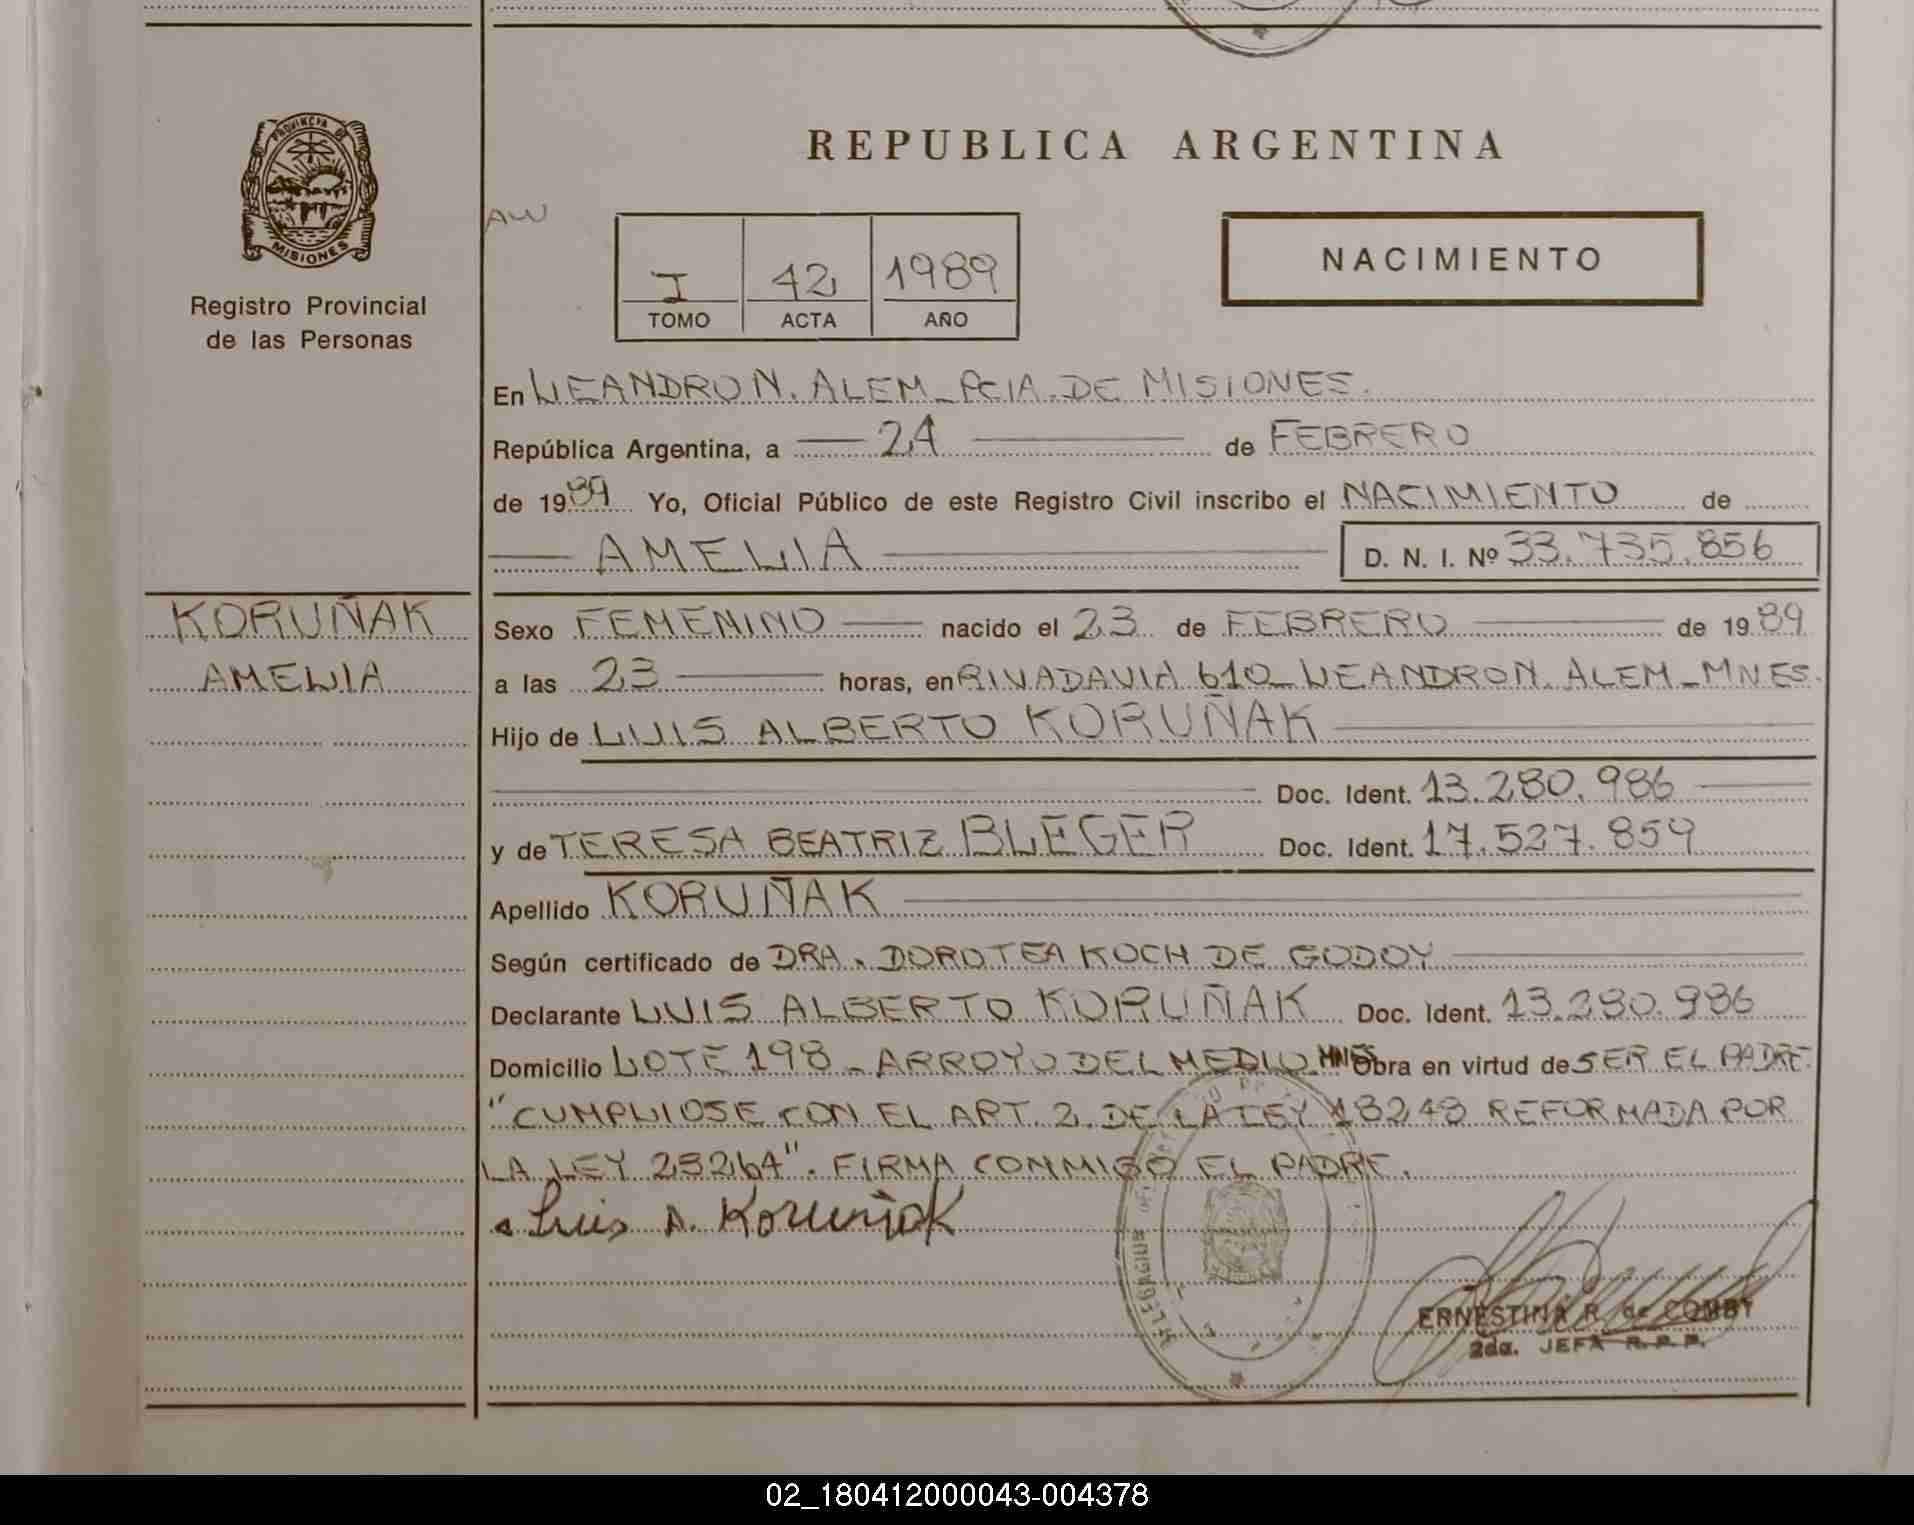 PROVINCIA DE
MISIONES
Registro Provincial
de las Personas
REPUBLICA ARGENTINA
AW
I 42 1989
TOMO ACTA AÑO
NACIMIENTO
En LEANDRO N. ALEM_PCIA. DE MISIONES.
República Argentina, a 24 de FEBRERO
de 1989 Yo, Oficial Público de este Registro Civil inscribo el NACIMIENTO de
AMELIA D. N. I. Nº 33.735.856
KORUÑAK
AMELIA
Sexo FEMENINO nacido el 23 de FEBRERO de 1989
a las 23 horas, en RIVADAVIA 610_LEANDRO N. ALEM_MNES.
Hijo de LUIS ALBERTO KORUÑAK
Doc. Ident. 13.280.986
y de TERESA BEATRIZ BLEGER Doc. Ident. 17.527.859
Apellido KORUÑAK
Según certificado de DRA. DOROTEA KOCH DE GODOY
Declarante LUIS ALBERTO KORUÑAK Doc. Ident. 13.280.986
Domicilio LOTE 198_ARROYO DEL MEDIO_MNES Obra en virtud de SER EL PADRE.
"CUMPLIOSE CON EL ART. 2 DE LA LEY 18248 REFORMADA POR
LA LEY 23264". FIRMA CONMIGO EL PADRE.
Luis A. Koruñak
ERNESTINA R. de COMBY
2da. JEFA R.P.P.
02_180412000043-004378